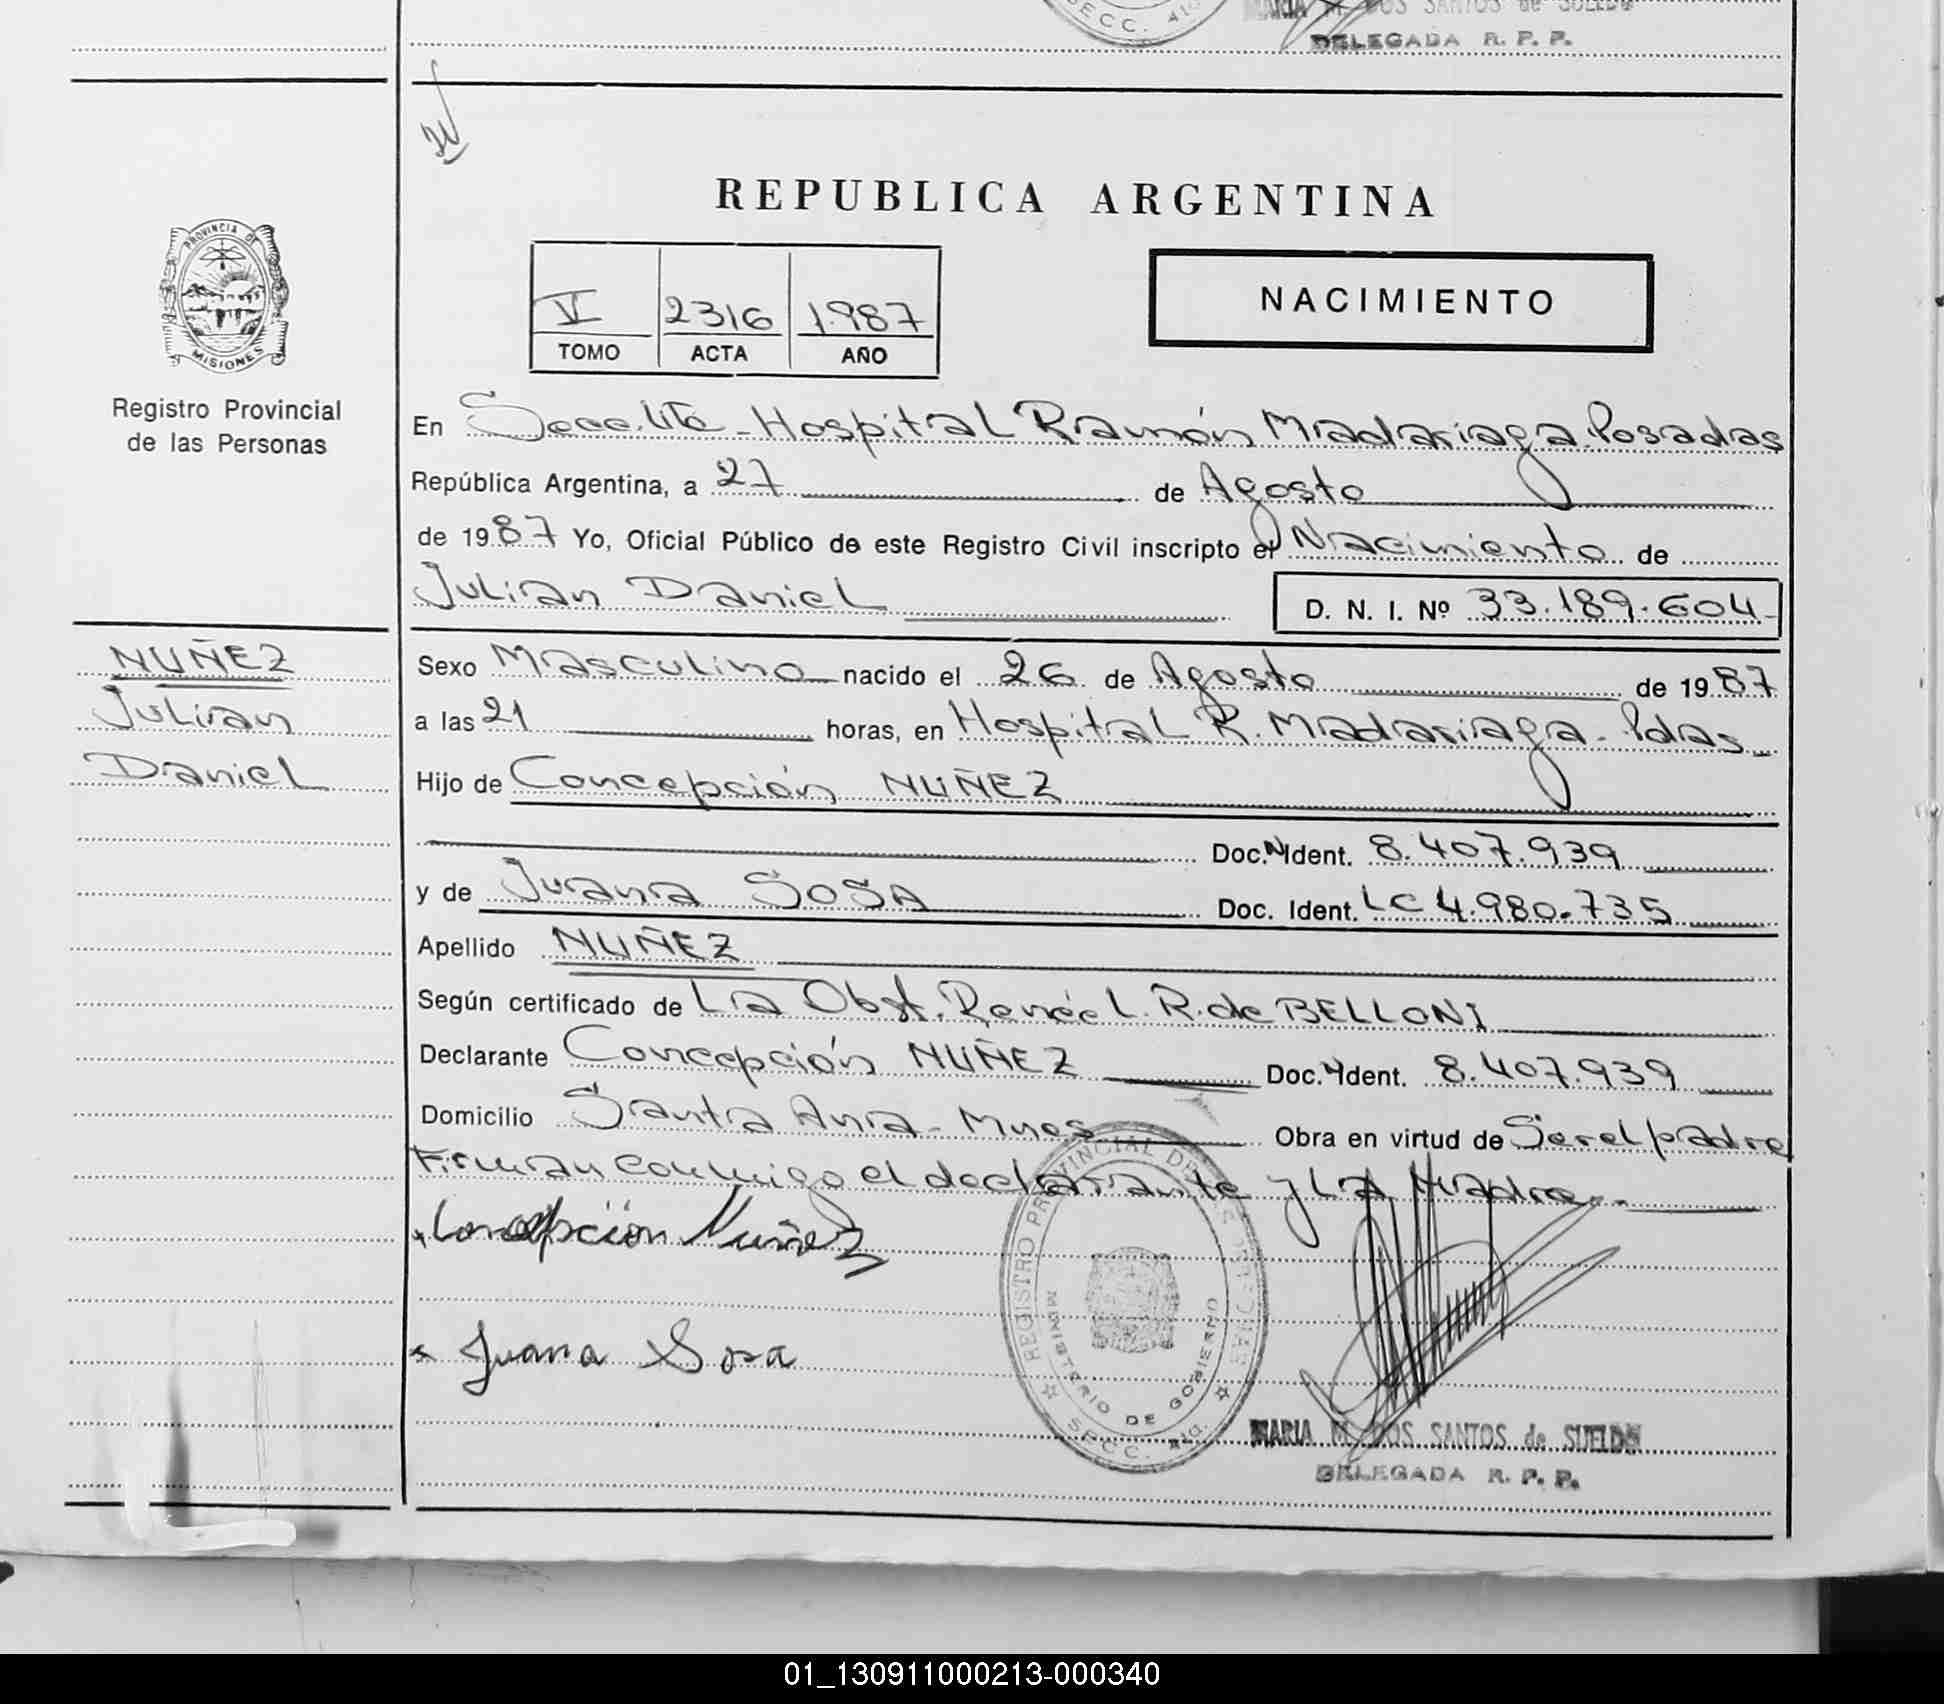 SECC. 4ta
MARIA M. DOS SANTOS de SUELDO
DELEGADA R. P. P.
REPUBLICA ARGENTINA
PROVINCIA DE
MISIONES
Registro Provincial
de las Personas
V 2316 1987
TOMO ACTA AÑO
NACIMIENTO
En Secc. 4ta - Hospital Ramón Madariaga. Posadas
República Argentina, a 27 de Agosto
de 1987 Yo, Oficial Público de este Registro Civil inscripto el Nacimiento de
Julian Daniel D. N. I. Nº 33.189.604
NUÑEZ
Julian
Daniel
Sexo Masculino nacido el 26 de Agosto de 1987
a las 21 horas, en Hospital R. Madariaga - Pdas
Hijo de Concepción NUÑEZ
Doc. N Ident. 8.407.939
y de Juana SOSA Doc. Ident. LC 4.980.735
Apellido NUÑEZ
Según certificado de La Obst. Renée L. R. de BELLONI
Declarante Concepción NUÑEZ Doc. Ident. 8.407.939
Domicilio Santa Ana - Mnes Obra en virtud de Ser el padre
Firman conmigo el declarante y LA Madre.
Concepción Nuñez
Juana Sosa
REGISTRO PROVINCIAL DE LAS PERSONAS
MINISTERIO DE GOBIERNO
SECC. 4ta.
MARIA M. DOS SANTOS de SUELDO
DELEGADA R. P. P.
01_130911000213-000340